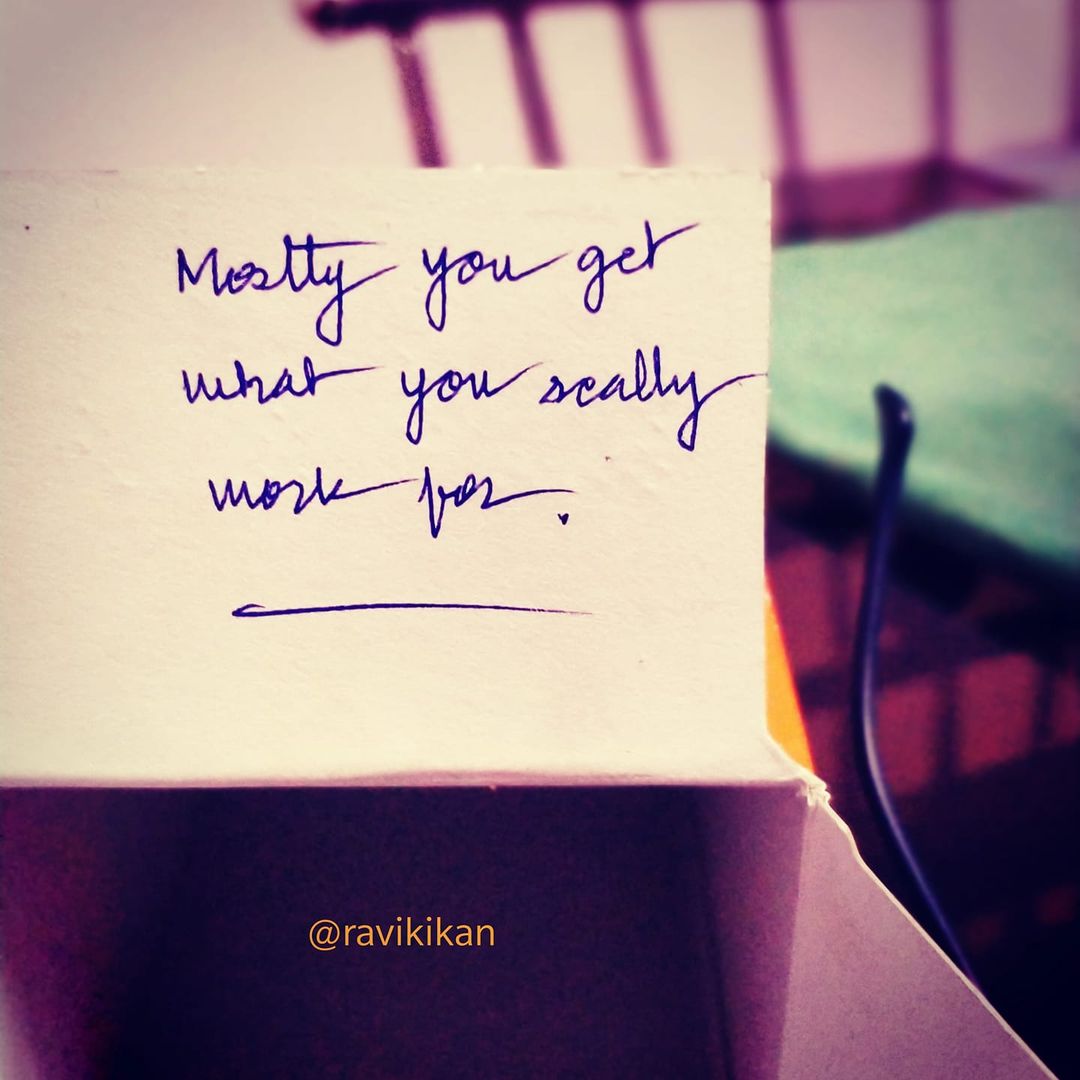 Mostly you get
what you really
work for.
@ravikikan